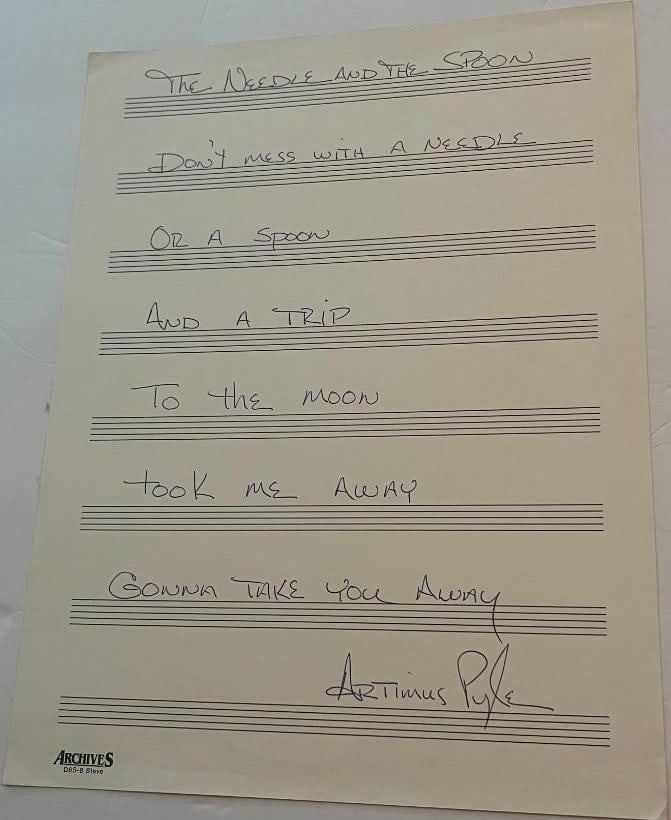 The Needle And The Spoon
Don't mess with A Needle
Or A Spoon
And A Trip
To the moon
took me Away
Gonna Take you Away
Artimus Pyle
ARCHIVES
D8S-9 Stave